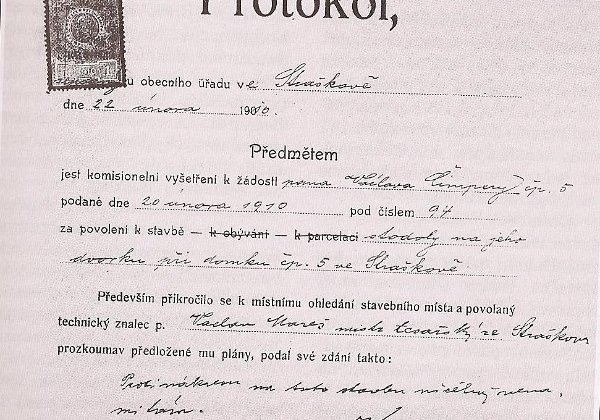 Protokol,
u obecního úřadu v e Straškově
dne 22 února 1910.
Předmětem
jest komisionelní vyšetření k žádosti pana Václava čp. 5
podané dne 20 února 1910 pod číslem 94
za povolení k stavbě — k obývání — k parcelaci stodoly na jeho
dvorku při domku čp. 5 ve Straškově
Především přikročilo se k místnímu ohledání stavebního místa a povolaný
technický znalec p. Václav Mareš mistr tesařský ze Straškova
prozkoumav předložené mu plány, podal své zdání takto:
Proti nákresu na tuto stavbu